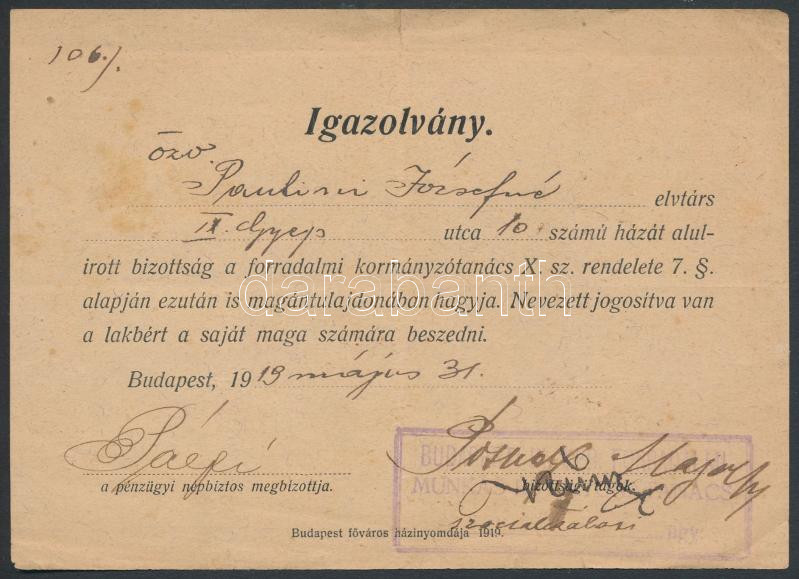 106./.
Igazolvány.
özv.
Paulini Józsefné elvtárs
IX. Gyep utca 10 számú házát alul-
irott bizottság a forradalmi kormányzótanács X. sz. rendelete 7. §.
alapján ezután is magántulajdonában hagyja. Nevezett jogosítva van
a lakbért a saját maga számára beszedni.
darabanth
Budapest, 1919 május 31.
Pálfi
a pénzügyi népbiztos megbizottja.
bizottsági tagok.
BUDAP
MUNKÁS
szocializálási
ügy.
Budapest főváros házinyomdája 1919.